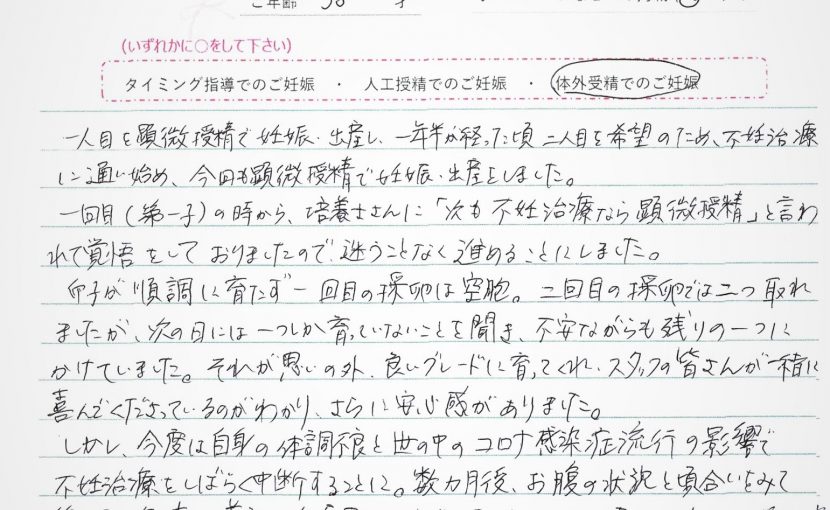 ご年齢 38 才
(いずれかに○をして下さい)
タイミング指導でのご妊娠 ・ 人工授精でのご妊娠 ・ 体外受精でのご妊娠
一人目を顕微授精で妊娠・出産し、一年半が経った頃 二人目を希望のため、不妊治療
に通い始め、今回も顕微授精で妊娠・出産をしました。
一回目(第一子)の時から、培養士さんに「次も不妊治療なら顕微授精」と言わ
れて覚悟をしておりましたので、迷うことなく進めることにしました。
卵子が順調に育たず一回目の採卵は空胞。二回目の採卵では二つ取れ
ましたが、次の日には一つしか育っていないことを聞き、不安ながらも残りの一つに
かけていました。それが思いの外、良いグレードに育ってくれ、スタッフの皆さんが一緒に
喜んでくださっているのがわかり、さらに安心感がありました。
しかし、今度は自身の体調不良と世の中のコロナ感染症流行の影響で
不妊治療をしばらく中断することに。数カ月後、お腹の状況と頃合いをみて